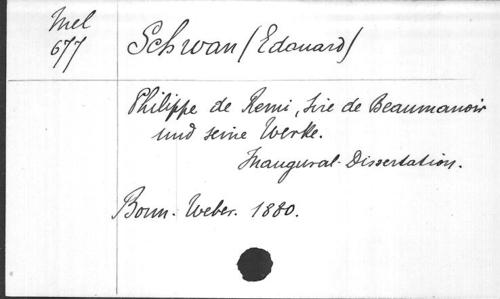 Mel
677
Schwan (Edouard)
Philippe de Remi, Sire de Beaumanoir
und seine Werke.
Inaugural-Dissertation.
Bonn. Weber. 1880.